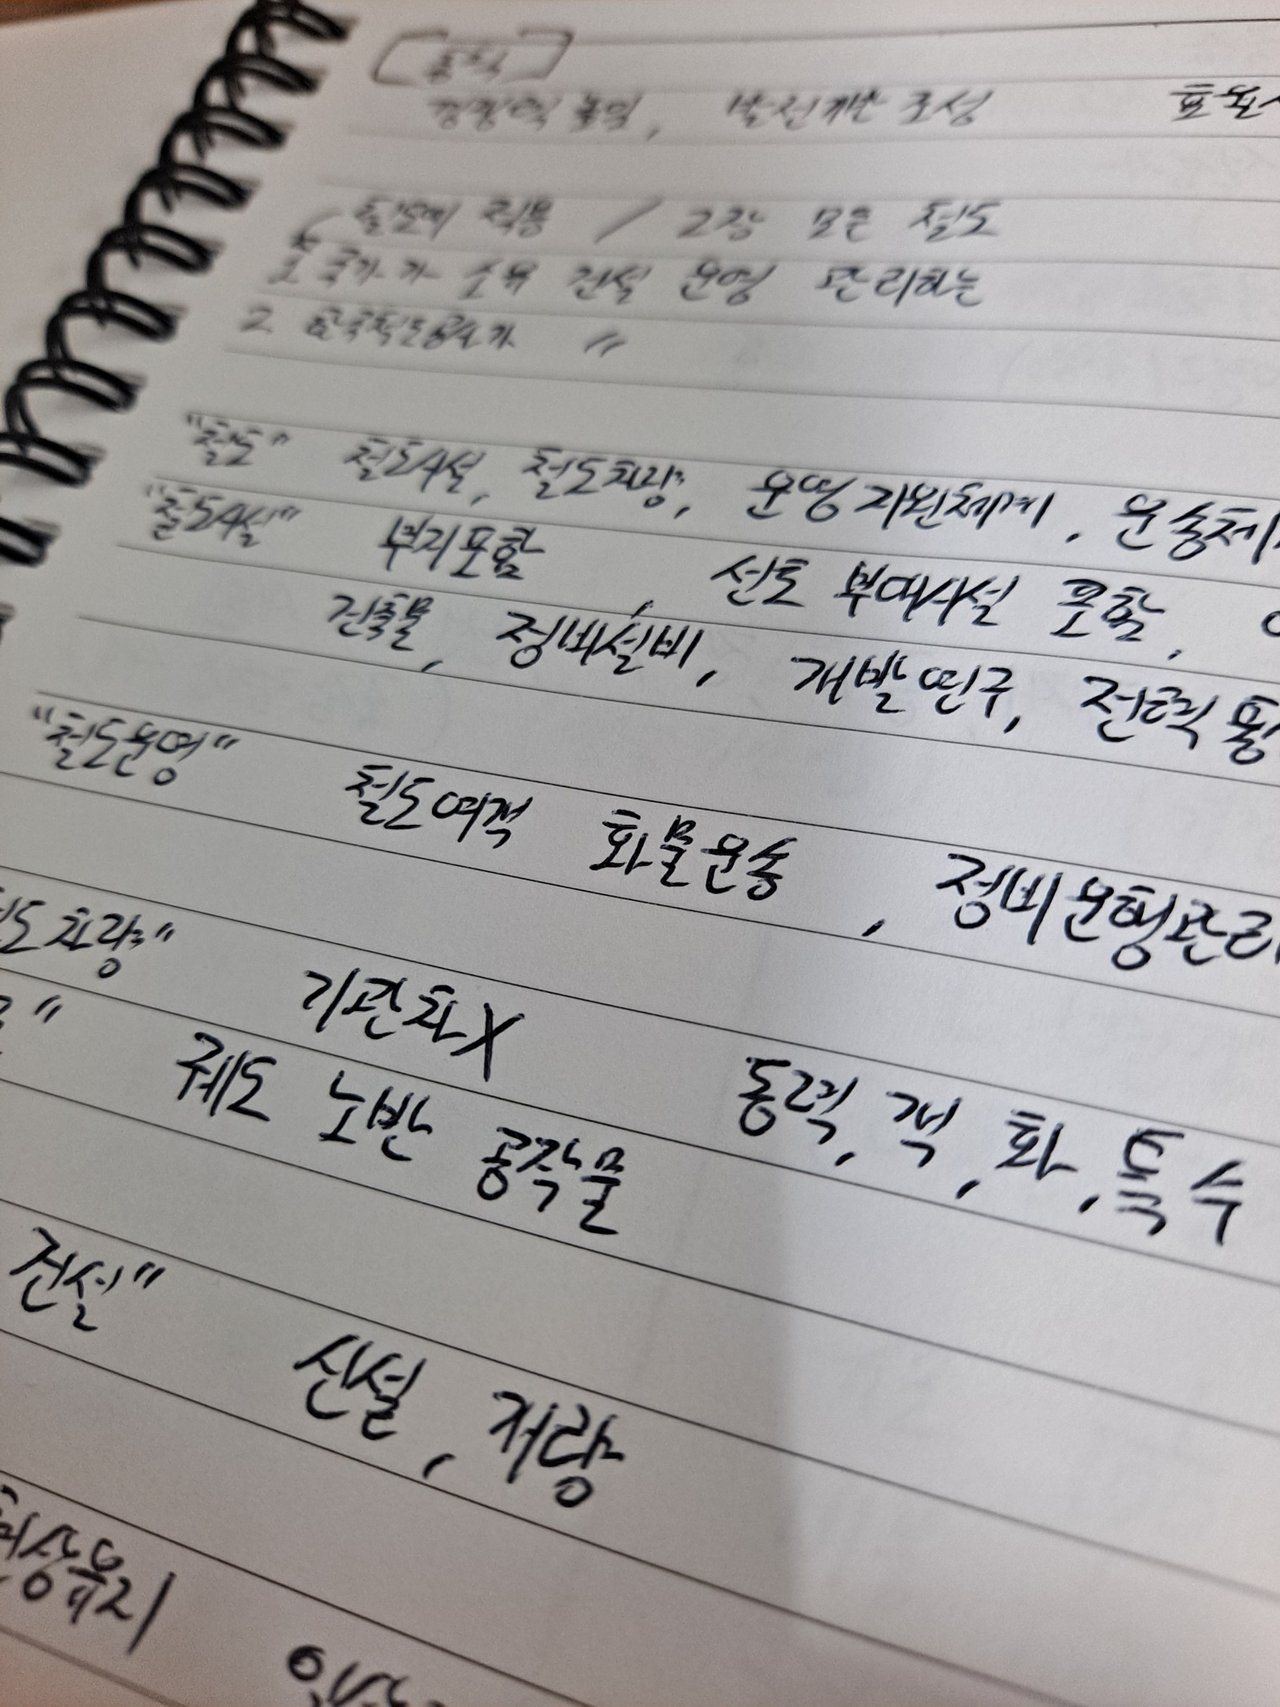 [목적]
경쟁력 높임, 발전기반 조성
철도에 적용 / 2장 모든 철도
1. 국가가 소유 건설 운영 관리하는
2. 한국철도공사가 〃
"철도" 철도시설, 철도차량, 운영지원체계, 운송체
"철도시설" 부지포함, 선로 부대시설 포함,
건축물, 정비설비, 개발연구, 전력
"철도운영" 철도여객 화물운송, 정비운행관리
도차량" 기관차X 동력, 객, 화, 특수
" 궤도 노반 공작물
건설" 신설, 개량
현상유지